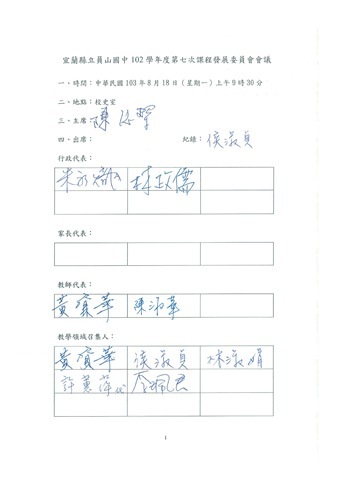 宜蘭縣立員山國中 102 學年度第七次課程發展委員會會議
一、時間：中華民國 103 年 8 月 18 日（星期一）上午 9 時 30 分
二、地點：校史室
三、主席 陳
四、出席： 紀錄： 侯淑貞
行政代表：
朱 林政儒
家長代表：
教師代表：
黃寶華 陳淑華
教學領域召集人：
黃寶華 侯淑貞 林淑娟
許蕙萍代 李珮君
1